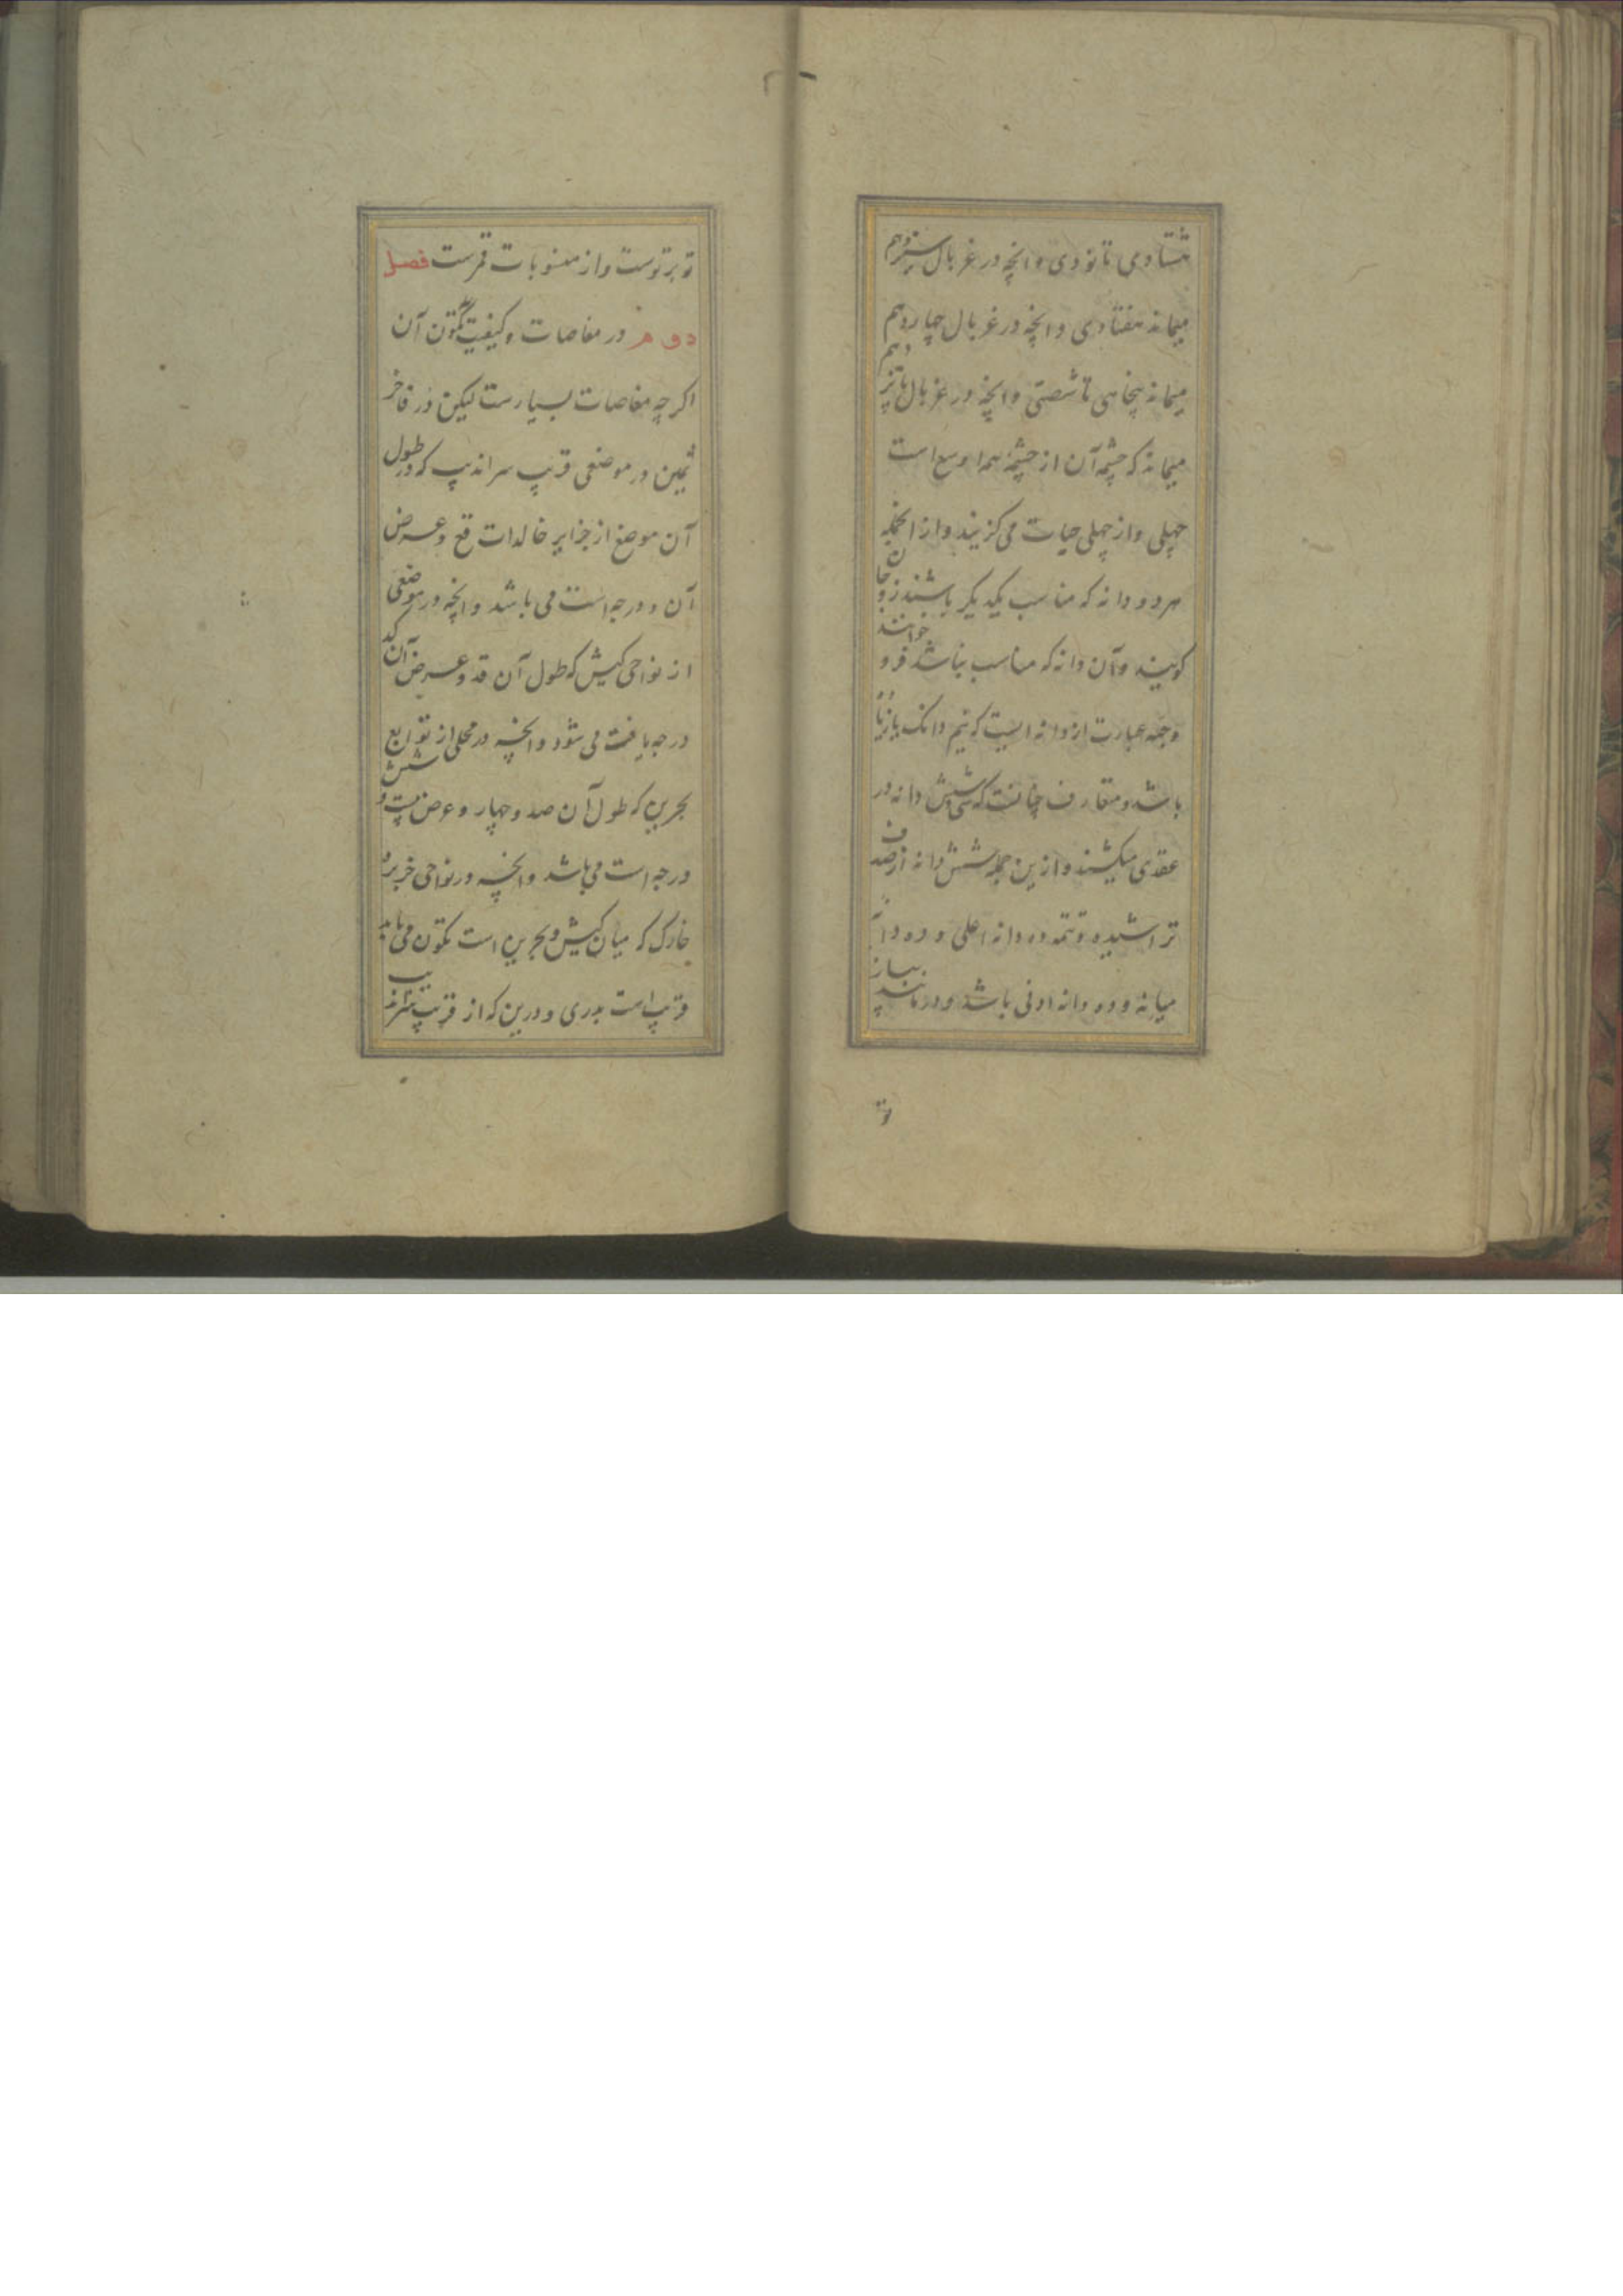 هشتادی تا نودی و انچه در غربال سیزدهم
میماند هفتادی و انچه در غربال چهاردهم
میماند پنجاهی تا شصتی و انچه در غربال پانزدهم
میماند که چشمه آن از چشمه همه اوسع است
چهلی و از چهلی حیات می گزینند و از انجمله
هر دو دانه که مناسب یکدیگر باشند زوجان
گویند و آن دانه که مناسب نباشد فرد خوانند
و حبه عبارت از دانه ایست که نیم دانک یا زیاده
باشد و متعارف چنانست که سی و شش دانه در
عقدی میکشند و ازین جمله شش دانه از صدف
تراشیده و تتمه ده دانه اعلی و ده دانه
میانه و ده دانه ادنی باشد و در مانند بسیار
تو
تو بر توست و از منسوبات قمرست فصل
دوم در مغاصات و کیفیت تکون آن
اگر چه مغاصات بسیارست لیکن در فاخر
ثمین در موضعی قریب سراندیپ که در طول
آن موضع از جزایر خالدات قع و عرض
آن ده درجه است می باشد و انچه در موضعی
از نواحی کیش که طول آن قد و عرض آن که
درجه یافت می شود و انچه در محلی از توابع
بحرین که طول آن صد و چهار و عرض بیست و شش
درجه است می باشد و انچه در نواحی جزیره
خارک که میان کیش و بحرین است تکون می یابد
قریب است بدری و درین که از قریب سراندیب